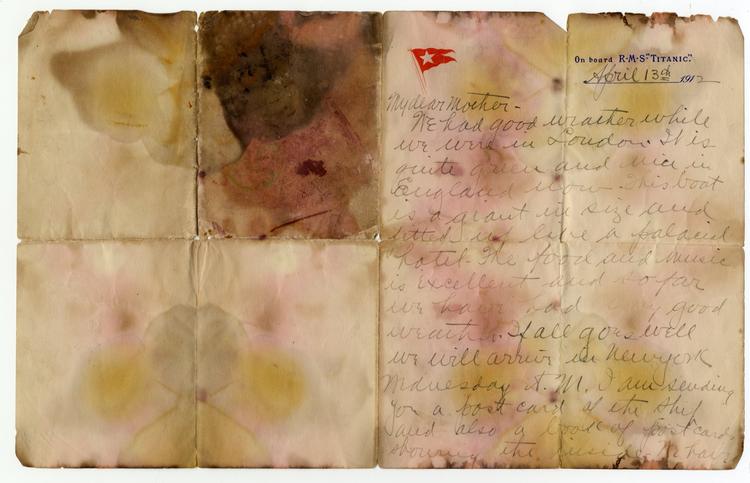 On board R·M·S "TITANIC".
April 13th 1912
My dear Mother-
We had good weather while
we were in London. It is
quite green and nice in
England now. This boat
is a giant in size and
fitted up like a palacial
hotel. The food and music
is excellent and so far
we have had very good
weather. If all goes well
we will arrive in New York
Wednesday A.M. I am sending
you a post card of the ship
and also a book of post cards
showing the inside.